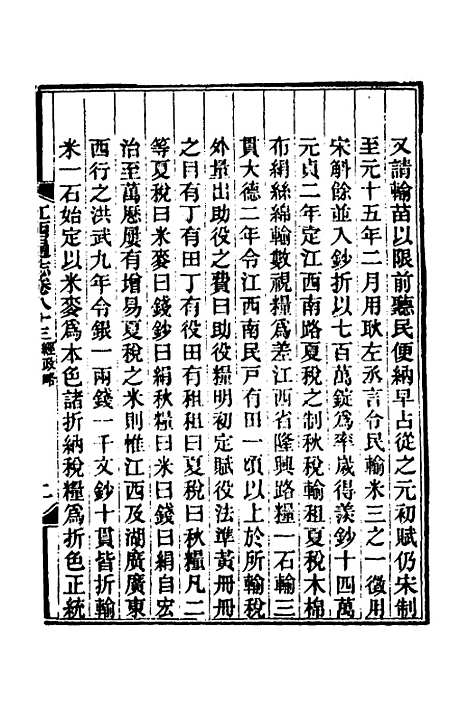 又請輸苗以限前聽民便納早占從之元初賦仍宋制
至元十五年二月用耿左丞言令民輸米三之一徵用
宋斛餘並入鈔折以七百萬錠爲率歲得羨鈔十四萬
元貞二年定江西南路夏稅之制秋稅輸租夏稅木棉
布絹絲綿輸數視糧爲差江西省隆興路糧一石輸三
貫大德二年令江西南民戸有田一頃以上於所輸稅
外量出助役之費曰助役糧明初定賦役法準黃冊冊
之目有丁有田丁有役田有租租曰夏稅曰秋糧凡二
等夏稅曰米麥曰錢鈔曰絹秋糧曰米曰錢曰絹自宏
治至萬歷屢有增易夏稅之米則惟江西及湖廣廣東
西行之洪武九年令銀一兩錢一千文鈔十貫皆折輸
米一石始定以米麥爲本色諸折納稅糧爲折色正統
江西通志卷八十三 經政略 二